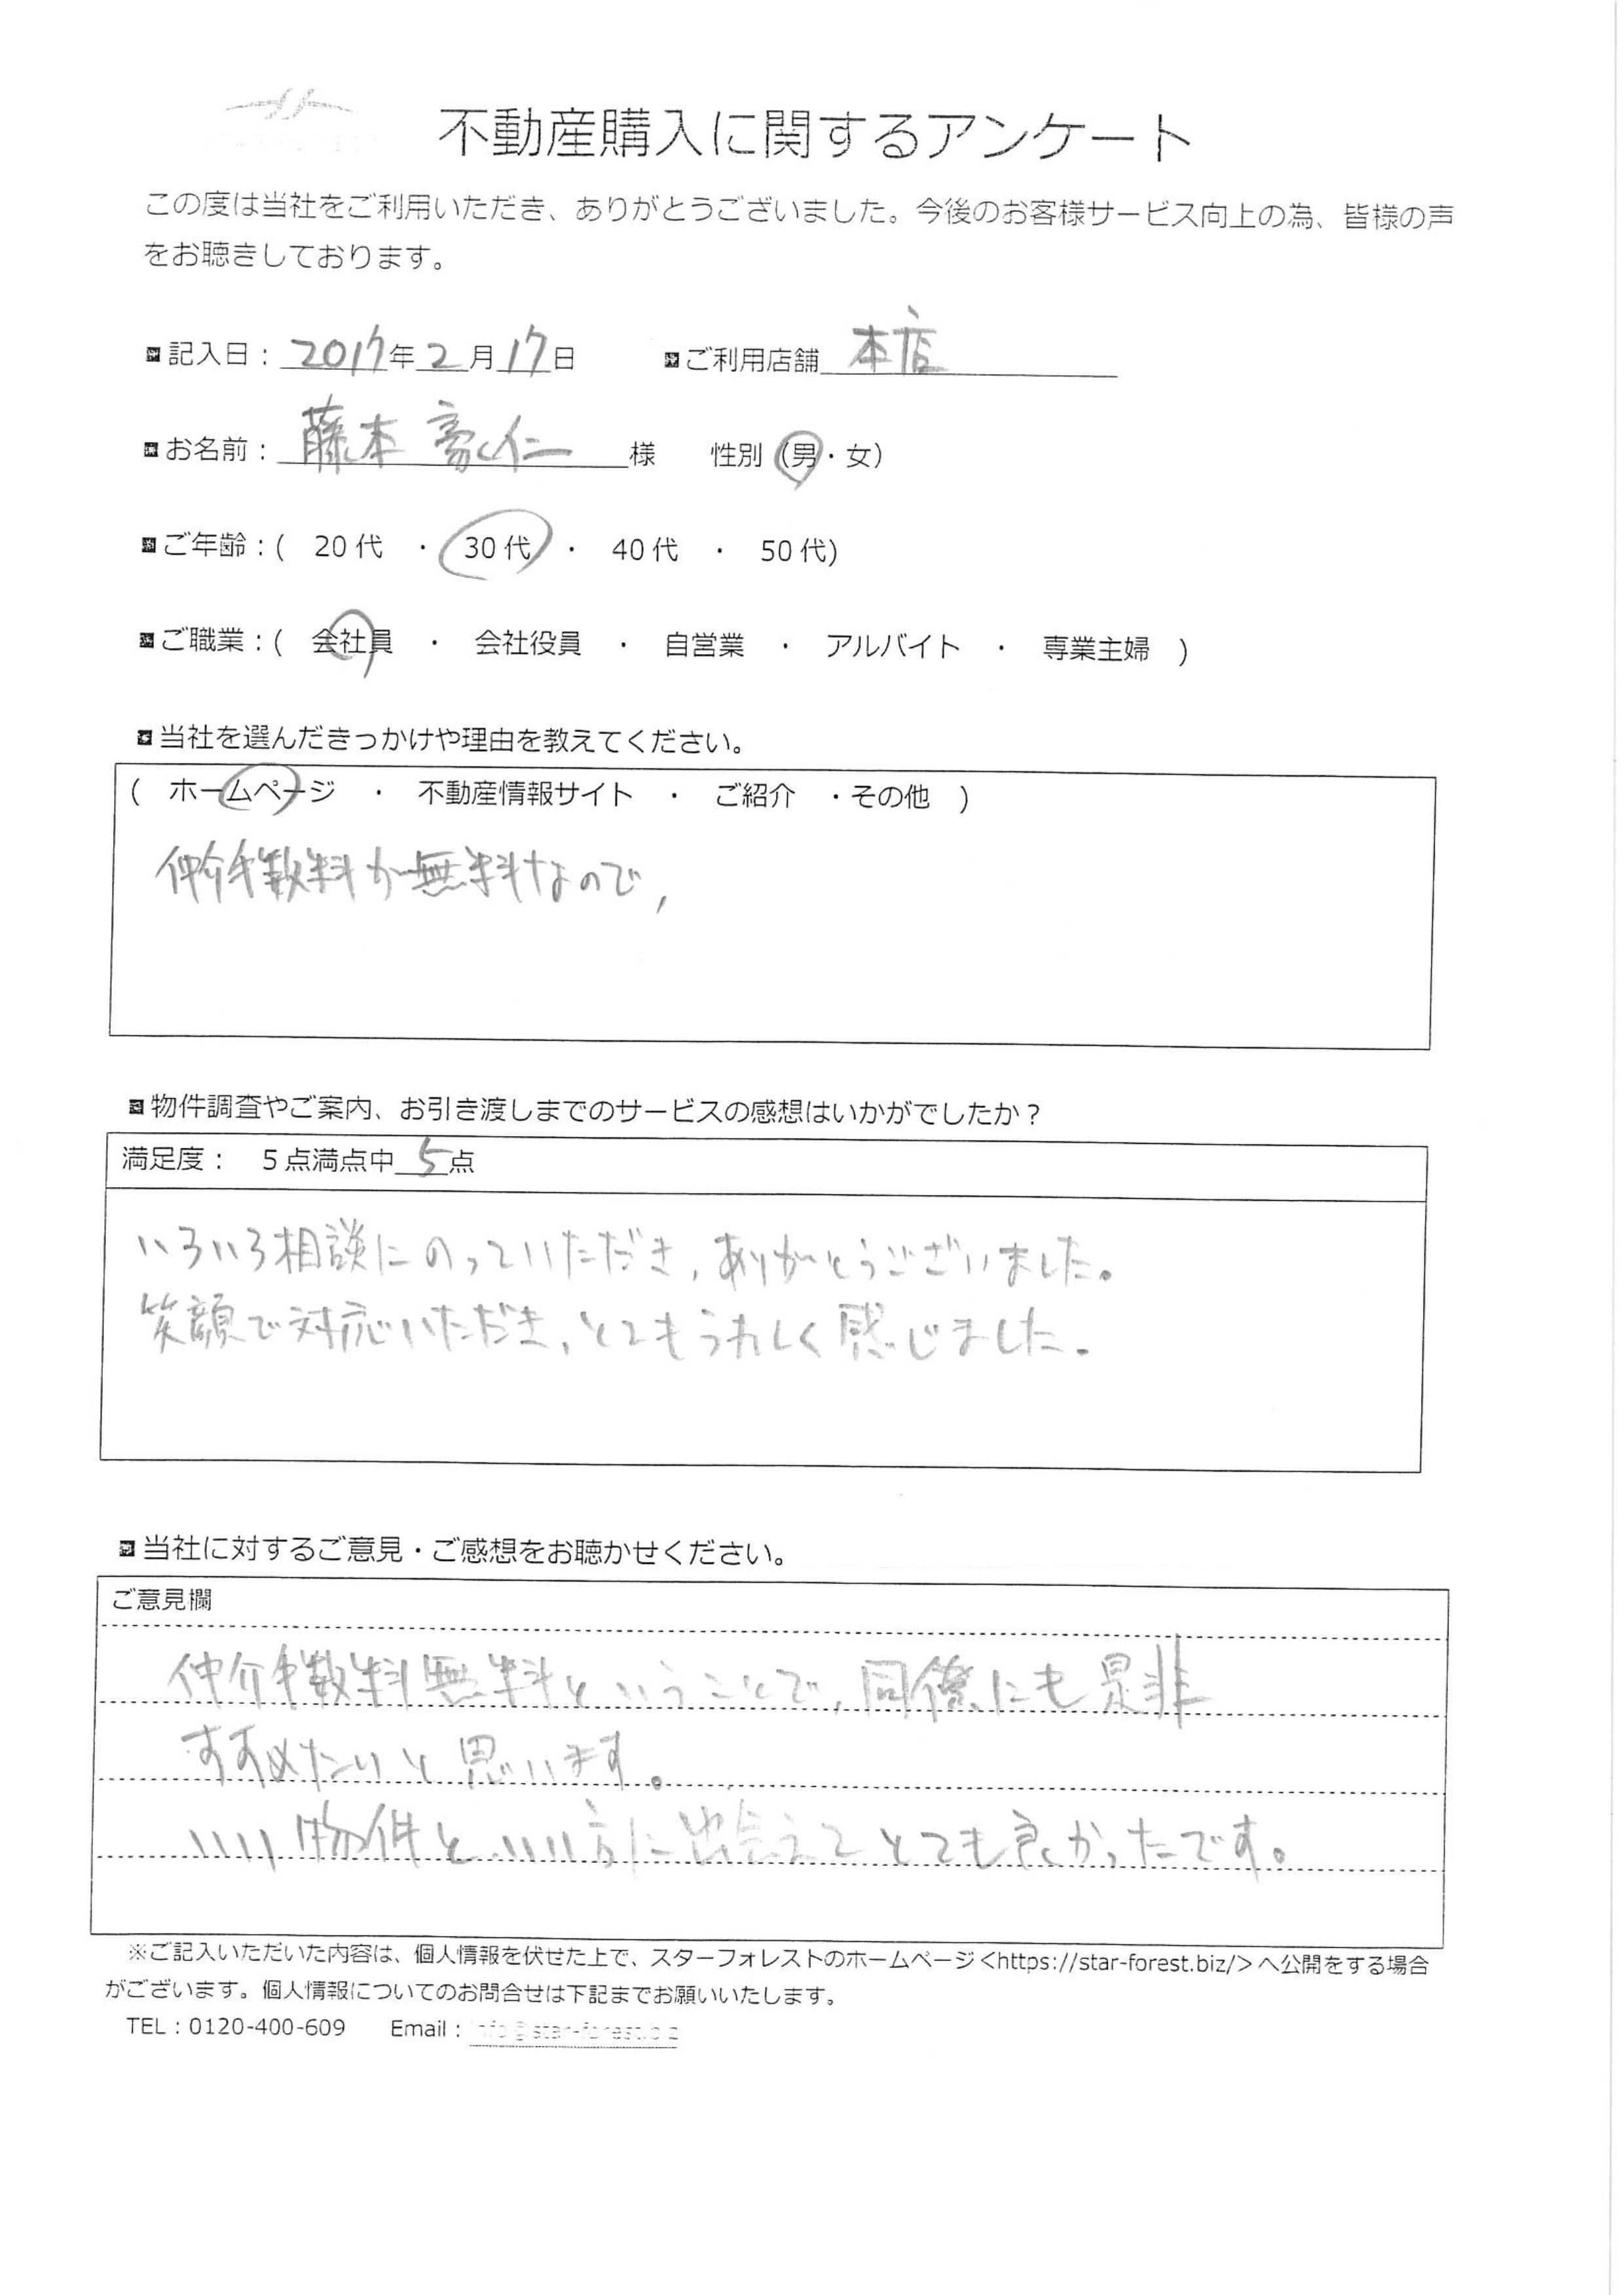 不動産購入に関するアンケート
この度は当社をご利用いただき、ありがとうございました。今後のお客様サービス向上の為、皆様の声
をお聴きしております。
記入日：2017年2月17日 ご利用店舗 本店
お名前：藤本 豪仁 様 性別（男・女）
ご年齢：( 20代 ・ 30代 ・ 40代 ・ 50代)
ご職業：( 会社員 ・ 会社役員 ・ 自営業 ・ アルバイト ・ 専業主婦 )
当社を選んだきっかけや理由を教えてください。
( ホームページ ・ 不動産情報サイト ・ ご紹介 ・その他 )
仲介手数料が無料なので,
物件調査やご案内、お引き渡しまでのサービスの感想はいかがでしたか？
満足度： 5点満点中 5 点
いろいろ相談にのっていただき,ありがとうございました。
笑顔で対応いただき,とてもうれしく感じました。
当社に対するご意見・ご感想をお聴かせください。
ご意見欄
仲介手数料無料ということで,同僚にも是非
すすめたいと思います。
いい物件といい方に出会えてとても良かったです。
※ご記入いただいた内容は、個人情報を伏せた上で、スターフォレストのホームページ<https://star-forest.biz/>へ公開をする場合
がございます。個人情報についてのお問合せは下記までお願いいたします。
TEL：0120-400-609 Email：info@star-forest.biz